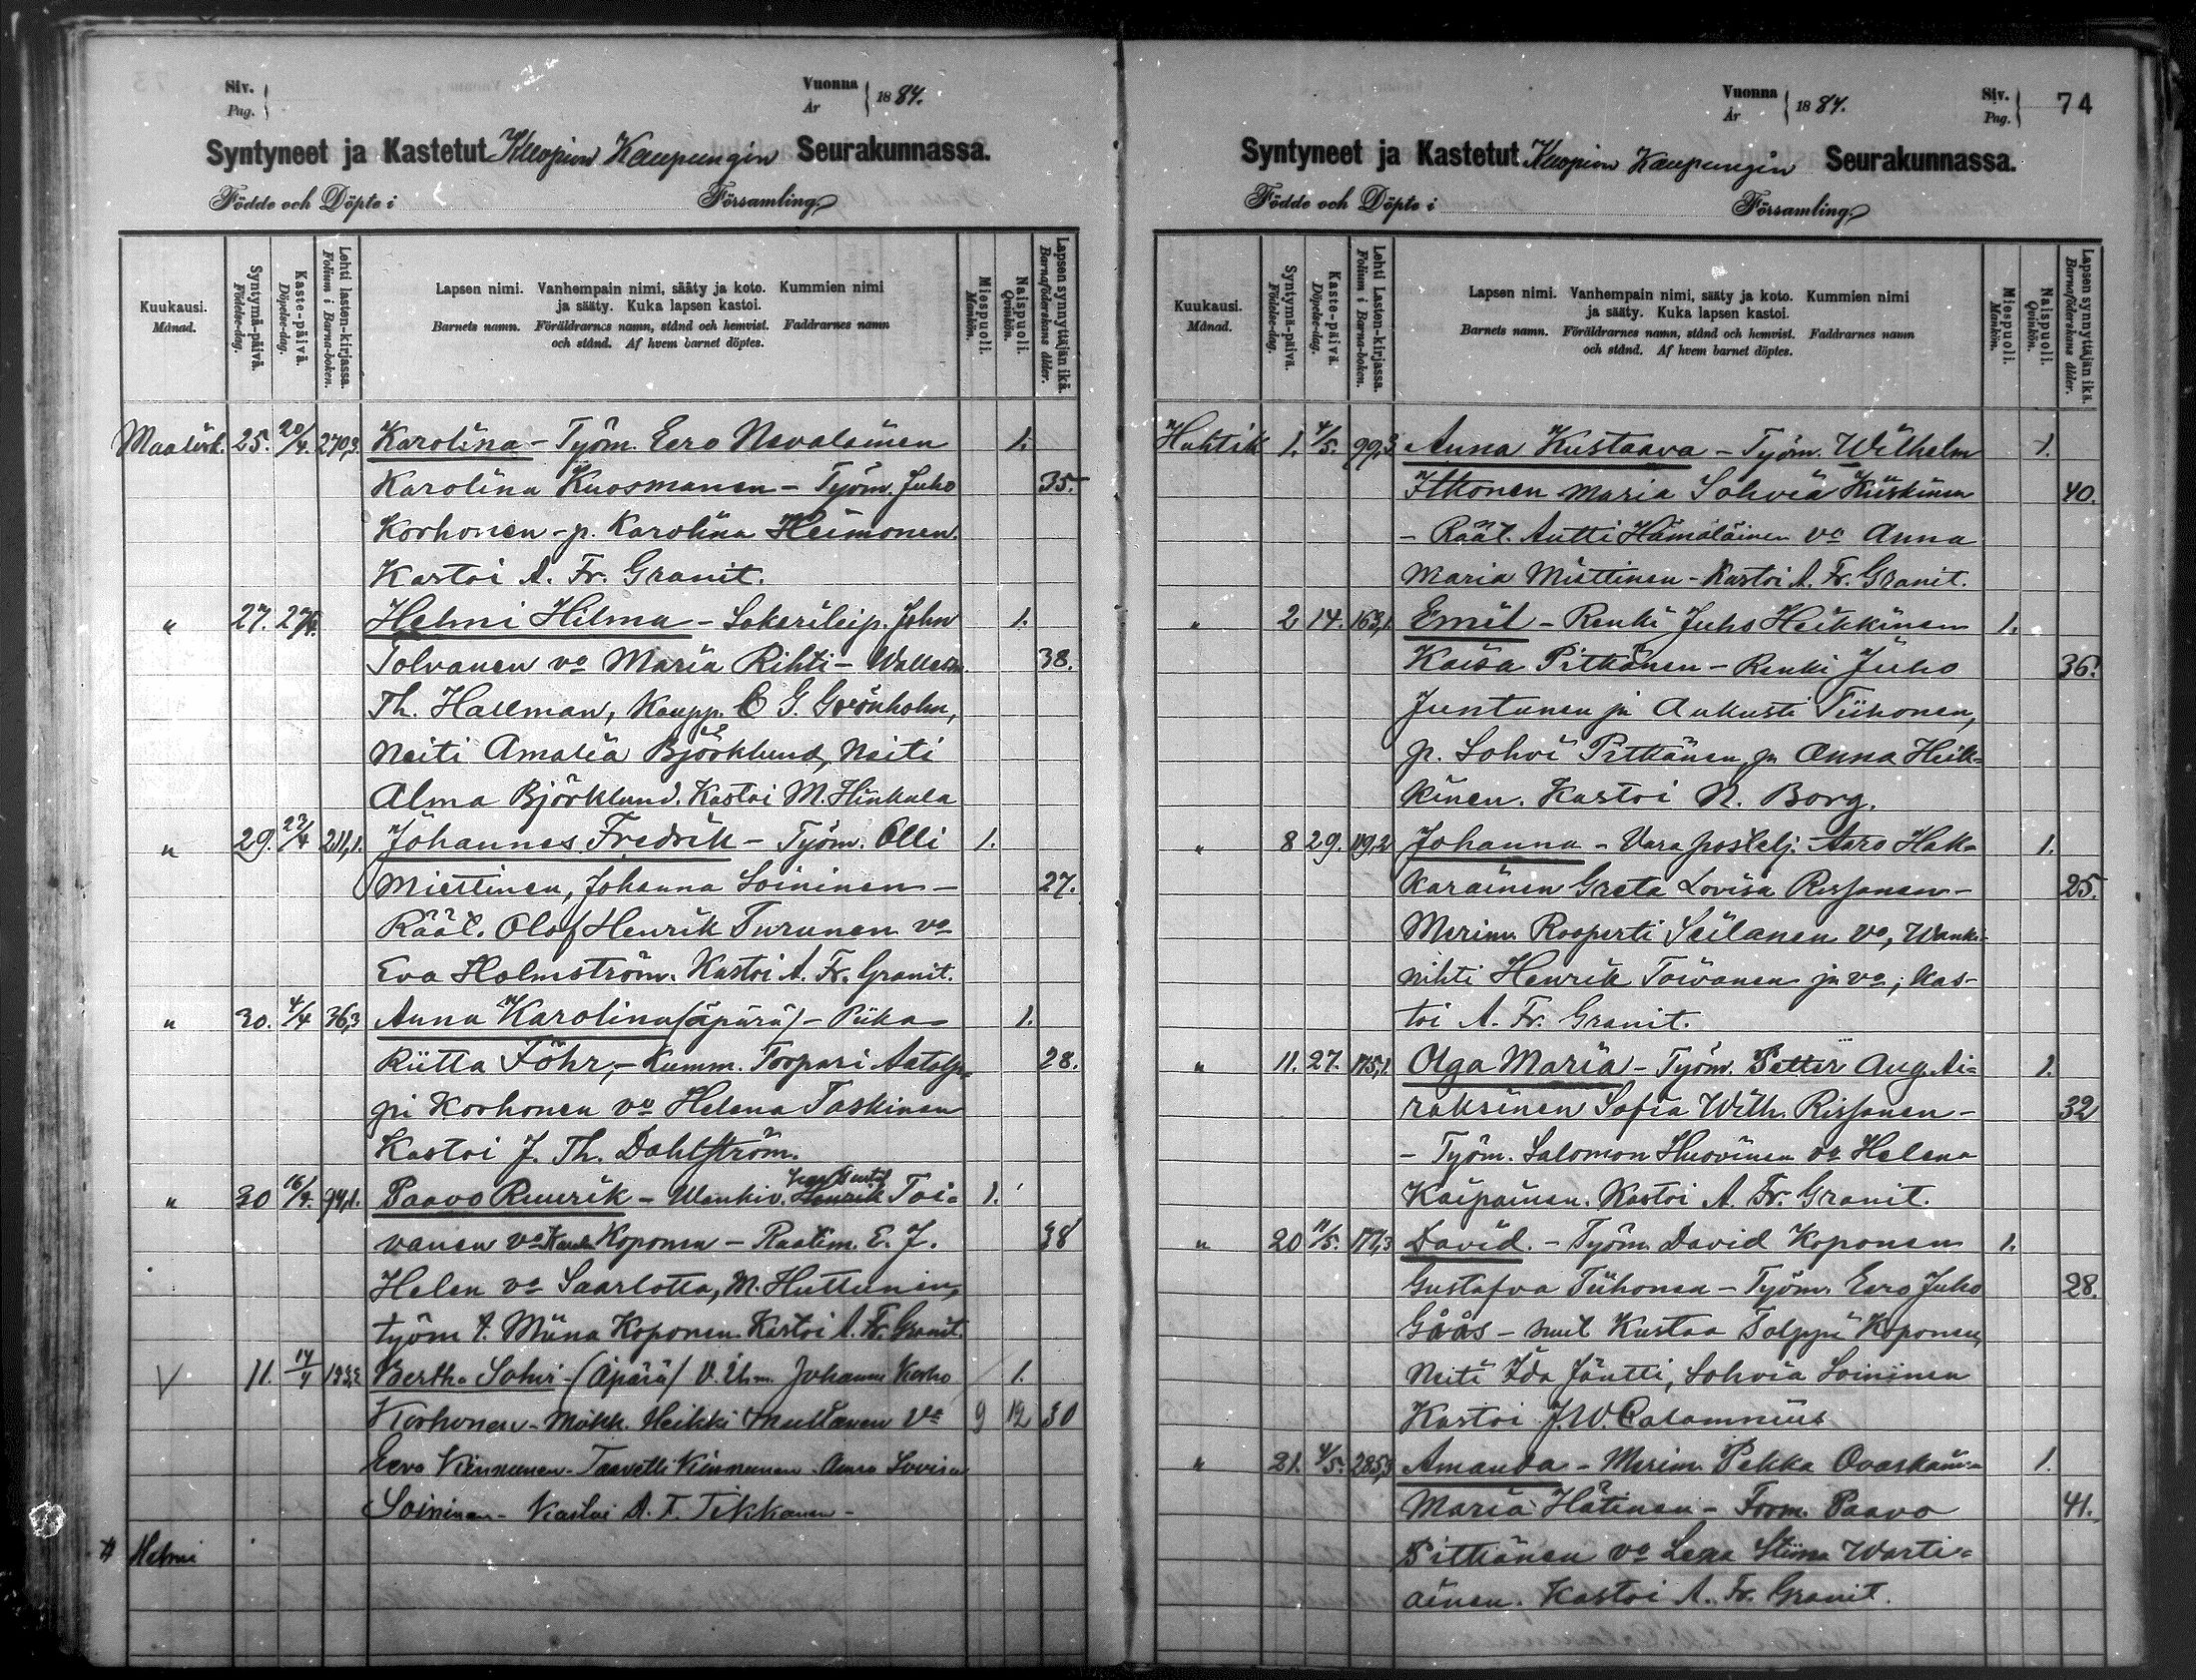 Siv.
Pag.
Vuonna
År
1884.
Syntyneet ja Kastetut Kuopion Kaupungin Seurakunnassa.
Födde och Döpte i Församling.
Kuukausi.
Månad.
Syntymä-päivä.
Födelse-dag.
Kaste-päivä.
Döpelse-dag.
Lehti lasten-kirjassa.
Folium i Barna-boken.
Lapsen nimi. Vanhempain nimi, sääty ja koto. Kummien nimi
ja sääty. Kuka lapsen kastoi.
Barnets namn. Föräldrarnes namn, stånd och hemvist. Faddrarnes namn
och stånd. Af hvem barnet döptes.
Miespuoli.
Mankön.
Naispuoli.
Qvinkön.
Lapsen synnyttäjän ikä.
Barnaföderskans ålder.
Maalisk. 25. 20/4. 270,3. Karolina - Työm. Eero Nevalainen 1.
Karolina Kuosmanen - Työm. Juho 35.
Korhonen - p. Karolina Heimonen.
Kastoi A. Fr. Granit.
" 27. Helmi Hilma - Sokerileip. John 1.
Tolvanen vo Maria Rihti - 38.
Th. Hallman, Kaupp. C G. Grönholm,
Neiti Amalia Björklund, Neiti
Alma Björklund. Kastoi M. Hinkula
" 29. 23/4 211,1. Johannes Fredrik - Työm. Olli 1.
Miettinen, Johanna Soininen - 27.
Räät. Olof Henrik Turunen vo
Eva Holmström. Kastoi A. Fr. Granit.
" 30. 4/4 36,3 Anna Karolina (äpärä) - Piika 1.
Riitta Föhr, - Kumm. Toopari 28.
pi Korhonen vo Helena Taskinen
Kastoi J. Th. Dahlström.
" 30 16/4. 94,1. Paavo Ruurik - Toi- 1.
vanen vo Koponen - Raatim. E. J. 38
Helen vo Saarlotta, M. Huttunen,
työm t. Miina Koponen. Kastoi A. Fr. Granit.
V 11. 14/4 Bertha Sohvi - (Äpärä) Johanna 1.
Korhonen - Mökk. Heikki vo 9 12 30
Eeva Kinnunen - Taavetti Kinnunen - Anna Lovisa
Soininen - Kastoi A. F. Tikkanen -
# Helmi
Vuonna
År
1884.
Siv.
Pag.
74
Syntyneet ja Kastetut Kuopion Kaupungin Seurakunnassa.
Födde och Döpte i Församling.
Kuukausi.
Månad.
Syntymä-päivä.
Födelse-dag.
Kaste-päivä.
Döpelse-dag.
Lehti Lasten-kirjassa.
Folium i Barna-boken.
Lapsen nimi. Vanhempain nimi, sääty ja koto. Kummien nimi
ja sääty. Kuka lapsen kastoi.
Barnets namn. Föräldrarnes namn, stånd och hemvist. Faddrarnes namn
och stånd. Af hvem barnet döptes.
Miespuoli.
Mankön.
Naispuoli.
Qvinkön.
Lapsen synnyttäjän ikä.
Barnaföderskans ålder.
Huhtik 1. 4/5. 99,3 Anna Kustaava - Työm. Wilhelm 1.
Itkonen Maria Sohvia Kiiskinen 40.
- Räät. Antti Hämäläinen vo Anna
Maria Miettinen - Kastoi A. Fr. Granit.
" 2 14. 163,1. Emil - Renki Juho Heikkinen 1.
Kaisa Pitkänen - Renki Juho 36.
Juntunen ja Aukusti Tiihonen,
p. Sohvi Pitkänen ja Anna Heik-
kinen. Kastoi N. Borg.
" 8 29. 119,2 Johanna - Vara postelj. Aaro Hak- 1.
karainen Greta Lovisa Rissanen - 25.
Merim. Rooperti Seilanen vo, Wanki-
nihti Henrik Toivanen ja vo; Kas-
toi A. Fr. Granit.
" 11. 27. 175,1. Olga Maria - Työm. Petter Aug. Ai- 1.
raksinen Sofia Wilh. Rissanen - 32
- Työm. Salomon Huovinen vo Helena
Kaipainen. Kastoi A. Fr. Granit.
" 20 11/5. 177,3 David. - Työm. David Koponen 1.
Gustafva Tiihonen - Työm. Eero Juho 28.
Gåås - Kustaa Tolppi Koponen,
Neiti Ida Jäntti, Sohvia Soininen
Kastoi J.W. Calamnius
" 21. 4/5. 285,3 Amanda - Merim. Pekka Ovaskain- 1.
Maria Hätinen - Form. Paavo 41.
Pitkänen vo Lena Stiina Warti-
ainen. Kastoi A. Fr. Granit.